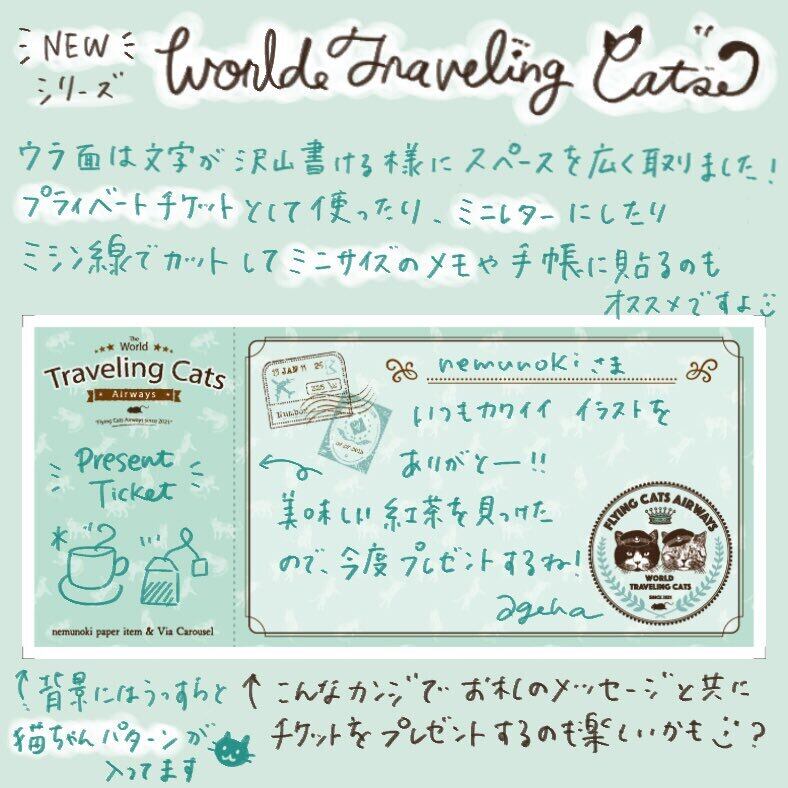 NEW
シリーズ
World Traveling Cats
ウラ面は文字が沢山書ける様にスペースを広く取りました！
プライベートチケットとして使ったり、ミニレターにしたり
ミシン線でカットしてミニサイズのメモや手帳に貼るのも
オススメですよ
The
World
Traveling Cats
Airways
"Flying Cats Airways since 2021"
Present
Ticket
nemunoki paper item & Via Carousel
nemunokiさま
いつもカワイイ イラストを
ありがとー!!
美味しい紅茶を見つけた
ので、今度プレゼントするね！
ageha
FLYING CATS AIRWAYS
WORLD
TRAVELING CATS
SINCE 2021
↑背景にはうっすらと
猫ちゃんパターンが
入ってます
↑こんなカンジでお礼のメッセージと共に
チケットをプレゼントするのも楽しいかも？